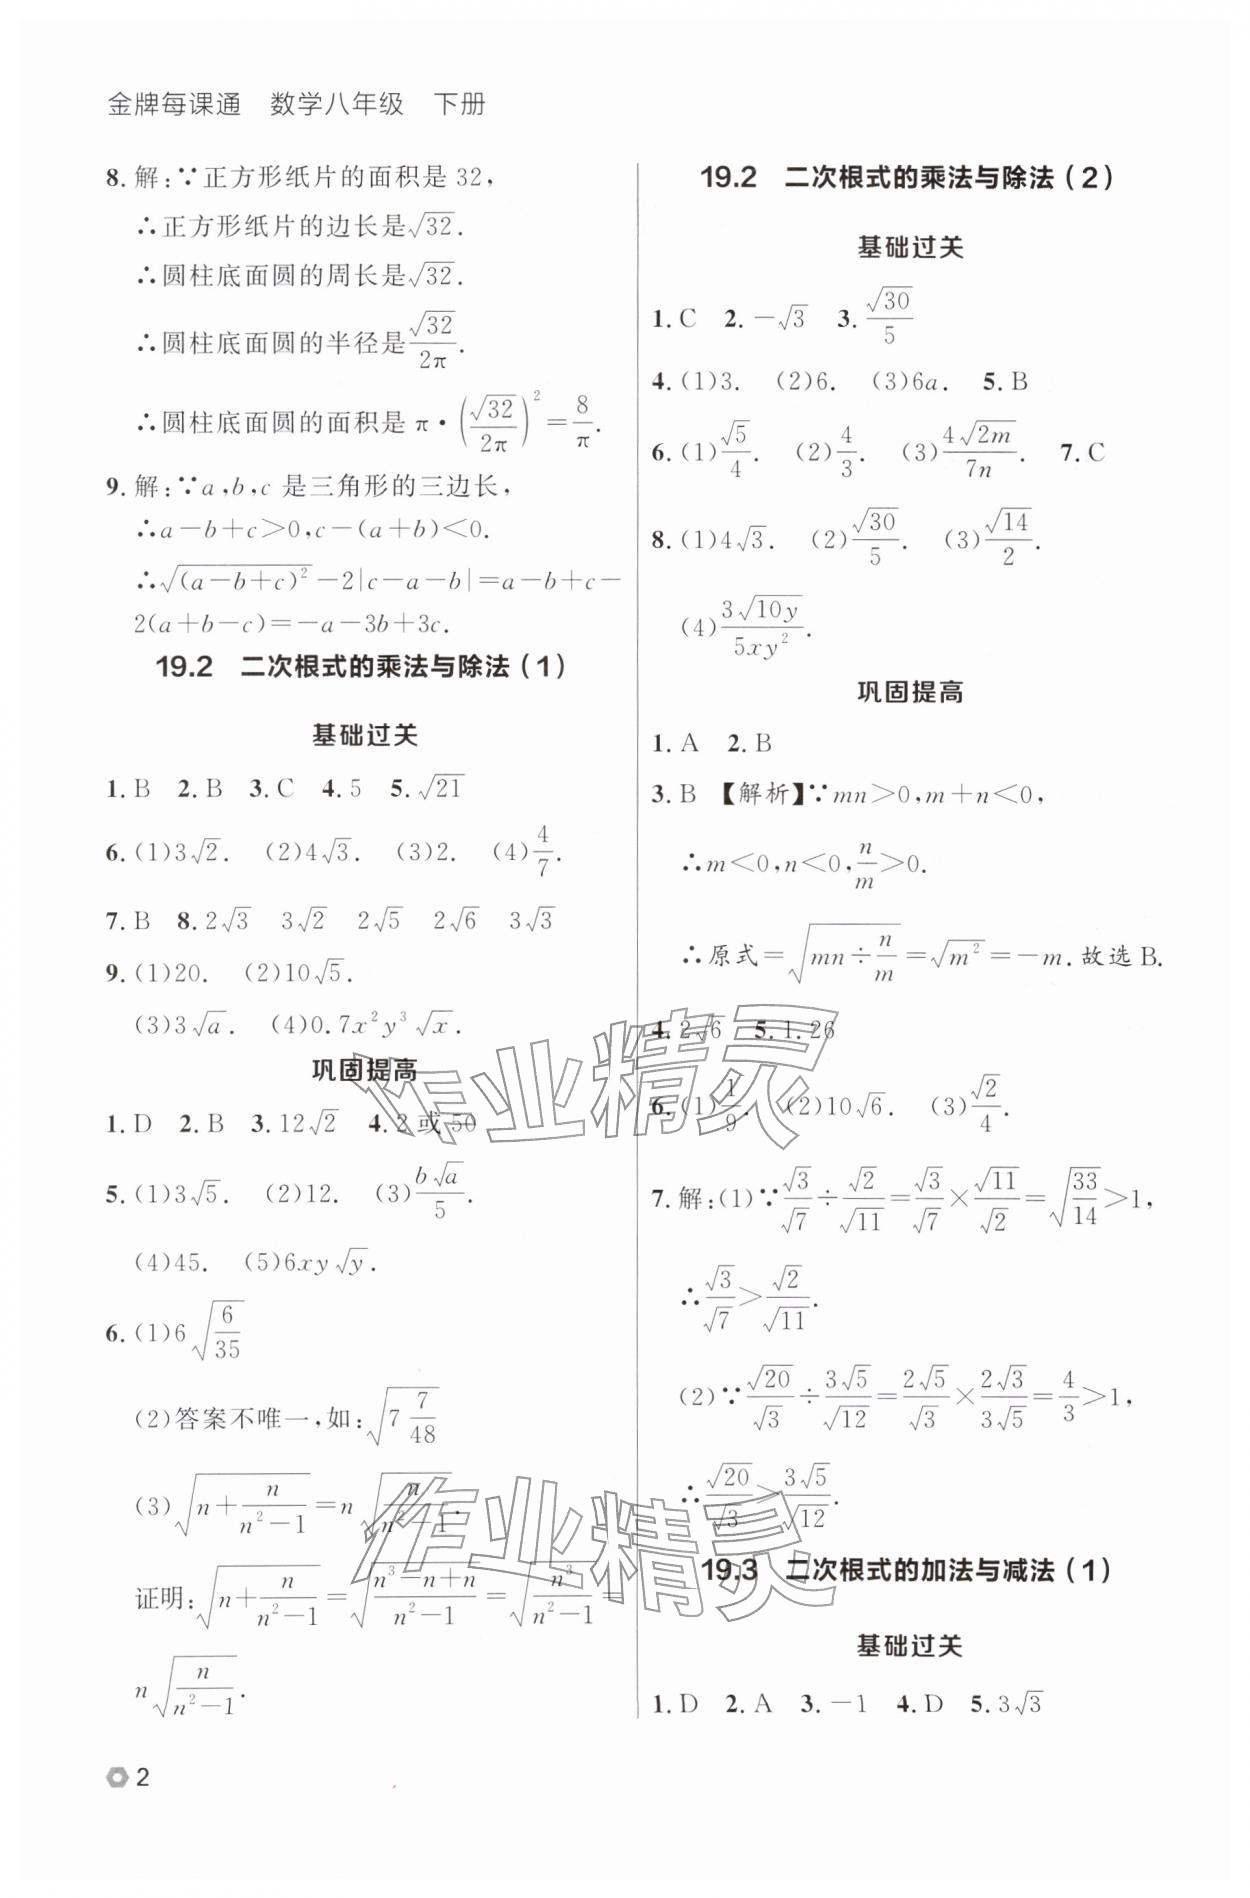 金牌每课通 数学八年级 下册
8. 解:∵正方形纸片的面积是 32,
∴正方形纸片的边长是√32.
∴圆柱底面圆的周长是√32.
∴圆柱底面圆的半径是√32/2π.
∴圆柱底面圆的面积是 π·(√32/2π)²=8/π.
9. 解:∵a,b,c 是三角形的三边长,
∴a-b+c>0,c-(a+b)<0.
∴√(a-b+c)²-2|c-a-b|=a-b+c-
2(a+b-c)=-a-3b+3c.
19.2 二次根式的乘法与除法(1)
基础过关
1. B 2. B 3. C 4. 5 5. √21
6. (1)3√2. (2)4√3. (3)2. (4)4/7.
7. B 8. 2√3 3√2 2√5 2√6 3√3
9. (1)20. (2)10√5.
(3)3√a. (4)0.7x²y³√x.
巩固提高
1. D 2. B 3. 12√2 4. 2 或 50
5. (1)3√5. (2)12. (3)b√a/5.
(4)45. (5)6xy√y.
6. (1)6√(6/35)
(2)答案不唯一,如:√(7 7/48)
(3)√(n+n/(n²-1))=n√(n/(n²-1)).
证明:√(n+n/(n²-1))=√((n³-n+n)/(n²-1))=√(n³/(n²-1))=
n√(n/(n²-1)).
2
19.2 二次根式的乘法与除法(2)
基础过关
1. C 2. -√3 3. √30/5
4. (1)3. (2)6. (3)6a. 5. B
6. (1)√5/4. (2)4/3. (3)4√2m/7n. 7. C
8. (1)4√3. (2)√30/5. (3)√14/2.
(4)3√10y/5xy².
巩固提高
1. A 2. B
3. B 【解析】∵mn>0,m+n<0,
∴m<0,n<0,n/m>0.
∴原式=√(mn÷n/m)=√m²=-m.故选 B.
4. 2√6 5. 1.26
6. (1)1/9. (2)10√6. (3)√2/4.
7. 解:(1)∵√3/√7÷√2/√11=√3/√7×√11/√2=√(33/14)>1,
∴√3/√7>√2/√11.
(2)∵√20/√3÷3√5/√12=2√5/√3×2√3/3√5=4/3>1,
∴√20/√3>3√5/√12.
19.3 二次根式的加法与减法(1)
基础过关
1. D 2. A 3. -1 4. D 5. 3√3
作业精灵
作业精灵